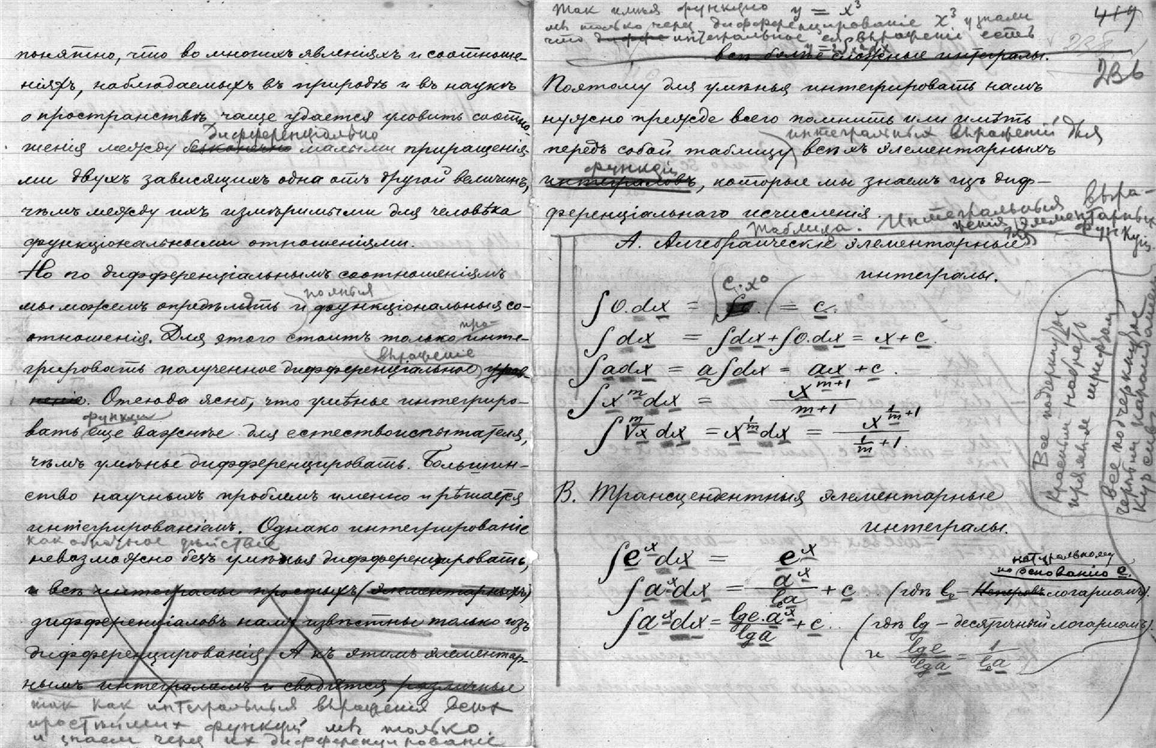 понятно, что во многихъ явленіяхъ и соотноше-
ніяхъ, наблюдаемыхъ въ природѣ и въ наукѣ
о пространствѣ, чаще удается уловить соотно
дифференціально
шенія между безконечно малыми приращенія
ми двухъ зависящихъ одна отъ другой величинъ,
чѣмъ между ихъ измѣримыми для человѣка
функціональными отношеніями.
Но по дифференціальнымъ соотношеніямъ
полныя
мы можемъ опредѣлить и функціональныя со-
отношенія. Для этого стоитъ только инте-
про-
выраженіе
грировать полученное дифференціальное урав-
неніе. Отсюда ясно, что умѣнье интегриро-
функціи
вать еще важнѣе для естествоиспытателя,
чѣмъ умѣнье дифференцировать. Большин-
ство научныхъ проблемъ именно и рѣшается
интегрированіемъ. Однако интегрированіе
какъ обратное дѣйствіе
невозможно безъ умѣнья дифференцировать,
и всѣ интегралы простыхъ (элементарныхъ)
дифференціаловъ намъ извѣстны только изъ
дифференцированія. А къ этимъ элементар-
нымъ интеграламъ и сводятся различные
такъ какъ интегральныя выраженія всѣхъ
простѣйшихъ функцій мы только
и знаемъ черезъ ихъ дифференцированіе
Такъ имѣя функцію y = x³
мы только черезъ дифференцированіе x³ узнали
что интегральное выраженіе есть
419
всѣ болѣе сложные интегралы.
Поэтому для умѣнья интегрировать намъ
нужно прежде всего помнить или имѣть
интегральныхъ выраженій для
передъ собой таблицу всѣхъ элементарныхъ
функцій
интеграловъ, которые мы знаемъ изъ диф-
ференціальнаго исчисленія.
Таблица. Интегральныя выра-
женія элементарныхъ функцій
A. Алгебраическіе элементарные
интегралы.
c·x⁰
∫0.dx = = c.
∫dx = ∫dx+∫0.dx = x+c.
∫adx = a∫dx = ax+c.
∫xᵐdx = x^(m+1)/(m+1)
∫ᵐ√x dx = x^(1/m)dx = x^(1/m+1)/(1/m+1)
B. Трансцендентныя элементарные
интегралы.
∫eˣdx = eˣ
натуральному
по основанію e.
∫aˣdx = aˣ/la + c (гдѣ l Неперовъ логариѳмъ).
∫aˣdx = lge.aˣ/lga + c. (гдѣ lg – десятичный логариѳмъ).
и lge/lga = 1/la
Все подчеркнутое
краснымъ набрать
прямымъ шрифтомъ
Все подчеркнутое
чернымъ карандашемъ
курсивъ